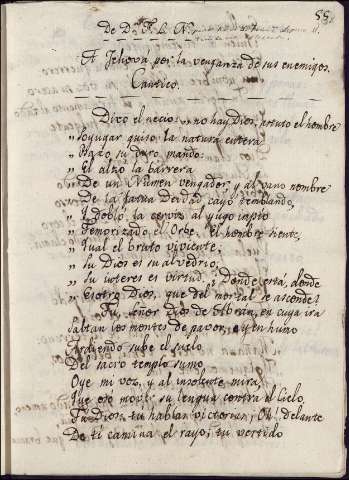 55
De Dn. F. L. N.
A Jehová, por la venganza de sus enemigos.
Cantico.
Dixo el necio: „no hay Dios, astuto el hombre
„ Soyugar quiso la natura entera
„ Baxo su duro mando:
„ El alzó la barrera
„ De un Numen vengador, y al vano nombre
„ De la falsa Deidad, cayó temblando,
„ I dobló la cerviz al yugo impio
„ Temorizado el Orbe. El hombre siente,
„ Iual el bruto viviente;
„ Su Dios es su alvedrio,
„ Su interes es virtud. ¿Donde está, donde
„ Esotro Dios, que del mortal se asconde?
Tu, señor Dios de Abran, en cuya ira
Saltan los montes de pavor, y en humo
Ardiendo sube el suelo
Del sacro templo sumo,
Oye mi voz, y al insolente mira,
Que osó mover su lengua contra el Cielo.
Tu Dios, tú hablar
Oh! delante
De ti camina el rayo; tu vestido